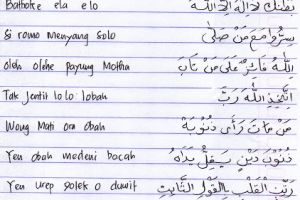 Bathoke ela elo لا إله إلا الله
Si romo menyang solo مع مَنْ صَلَّى
oleh olehe payung Motha اللّٰهُ عَلَى مَنْ تَابَ
Tak jentit lolo lobah اِتَّخِذِ اللّٰهَ رَبَّ
Wong Mati ora obah مَنْ مَاتَ رَأَى ذُنُوْبَهُ
Yen obah medeni bocah يَدَاهُ
Yen urep golek o duwit الْقَلْبَ بِالْقَوْلِ الثَّابِتِ